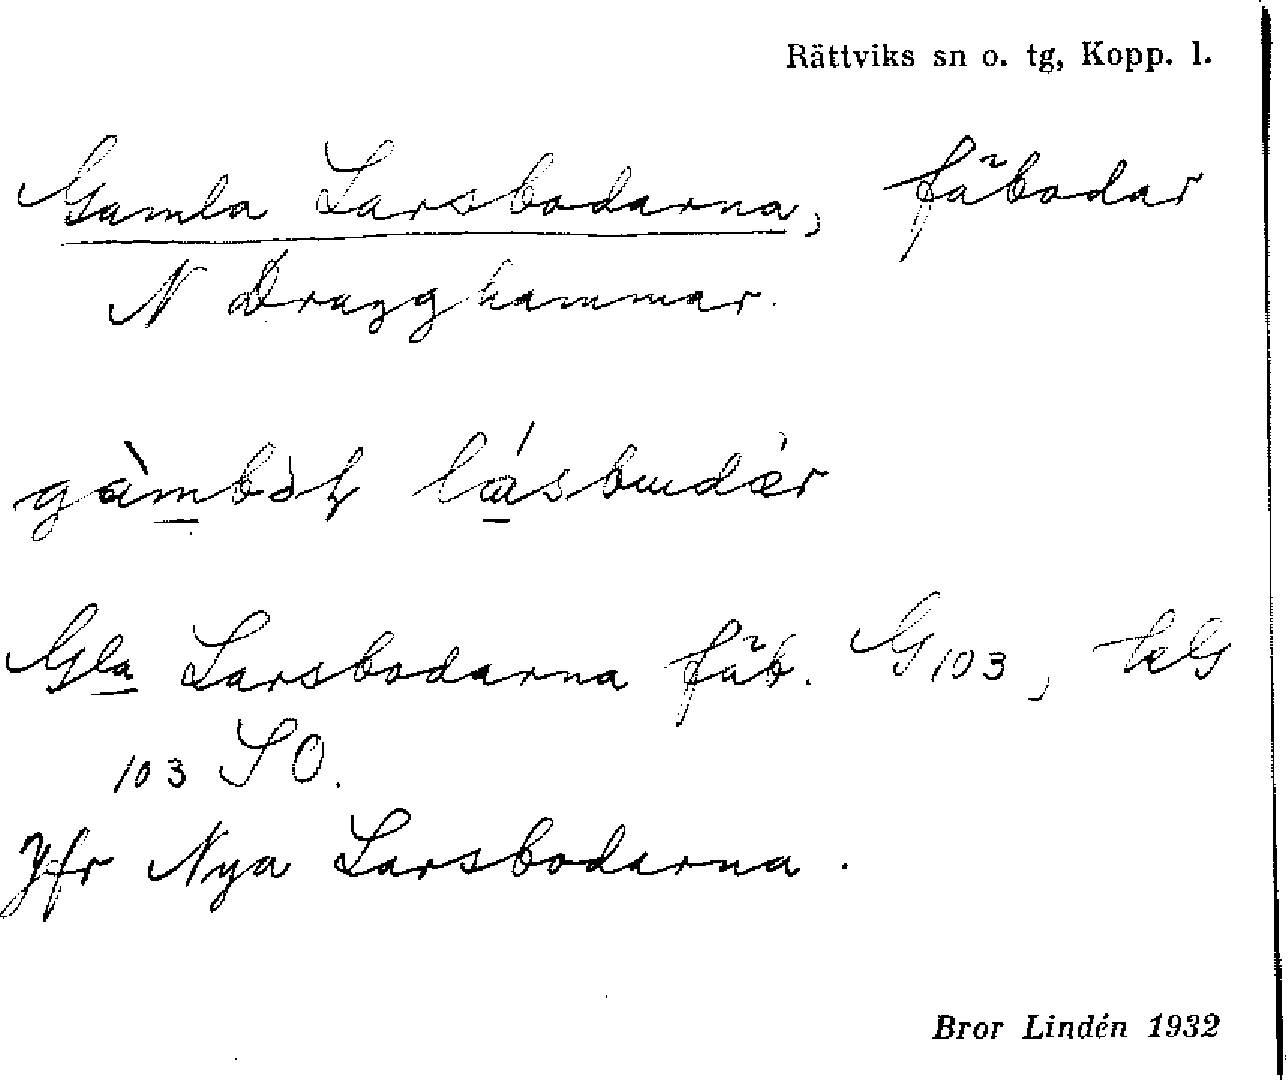 Rättviks sn o. tg, Kopp. l.
Gamla Larsbodarna, fäbodar
N Dragghammar.
Gla Larsbodarna fäb. G103, 
103 SO.
Jfr Nya Larsbodarna.
Bror Lindén 1932